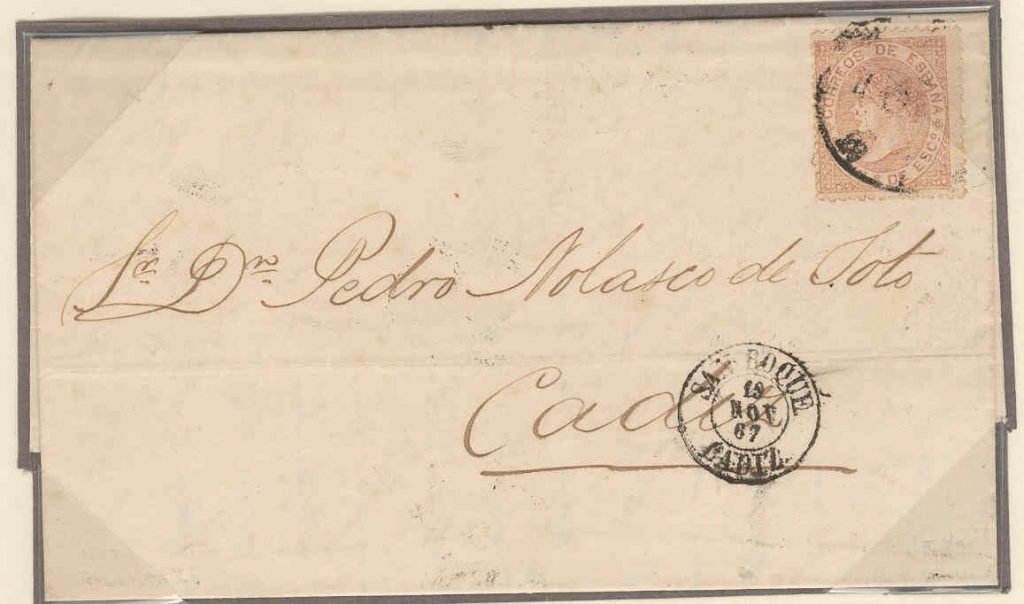 CORREOS DE ESPAÑA
DE ESCº
Sr. Dn. Pedro Nolasco de Soto
Cadiz
SAN ROQUE
19
NOV
67
CADIZ.